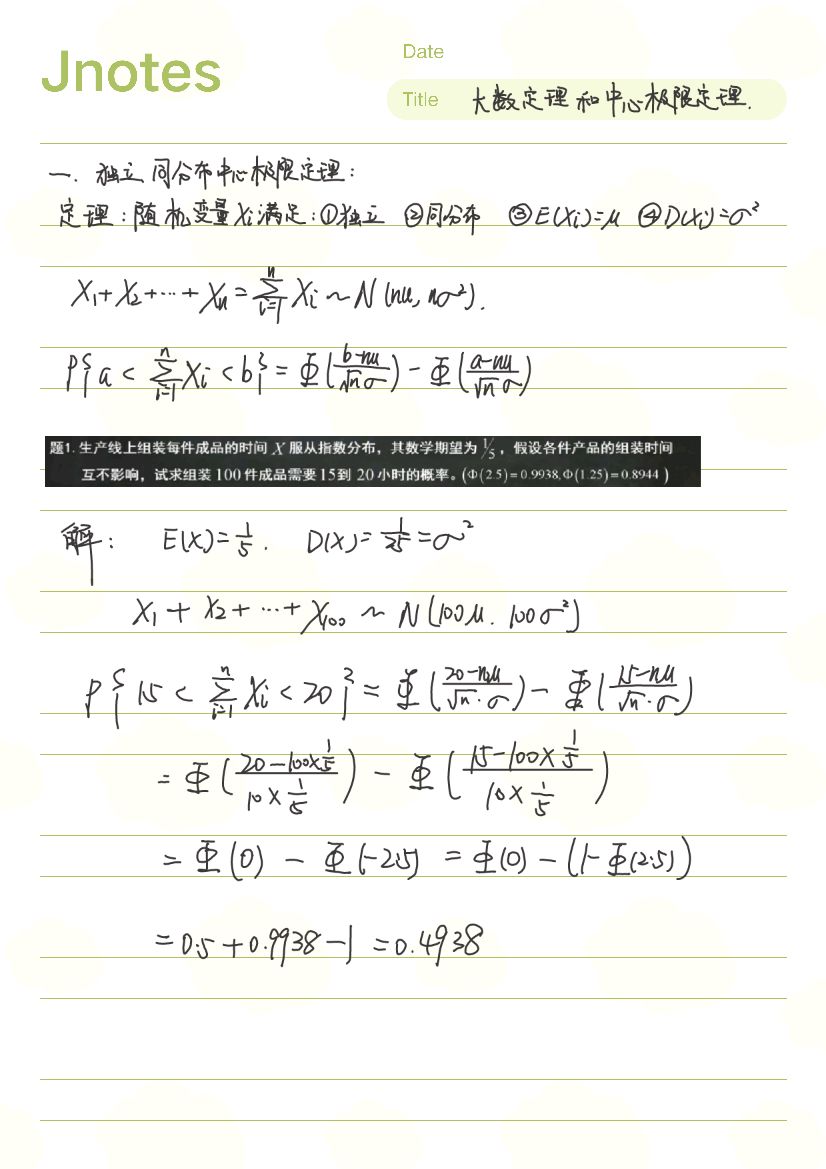 Jnotes
Date
Title 大数定理和中心极限定理.
一. 独立同分布中心极限定理:
定理:随机变量Xi满足:①独立 ②同分布 ③E(Xi)=μ ④D(Xi)=σ²
X₁+X₂+…+Xₙ=∑ⁿᵢ₌₁Xi~N(nμ,nσ²).
P{a<∑ⁿᵢ₌₁Xi<b}=Φ((b-nμ)/(√nσ))-Φ((a-nμ)/(√nσ))
题1.生产线上组装每件成品的时间 X 服从指数分布，其数学期望为 1/5，假设各件产品的组装时间
互不影响，试求组装100件成品需要15到 20小时的概率。(Φ(2.5)=0.9938,Φ(1.25)=0.8944)
解: E(X)=1/5. D(X)=1/25=σ²
X₁+X₂+…+X₁₀₀~N(100μ.100σ²)
P{15<∑ⁿᵢ₌₁Xi<20}=Φ((20-nμ)/(√n·σ))-Φ((15-nμ)/(√n·σ))
=Φ((20-100×1/5)/(10×1/5))-Φ((15-100×1/5)/(10×1/5))
=Φ(0)-Φ(-2.5)=Φ(0)-(1-Φ(2.5))
=0.5+0.9938-1=0.4938